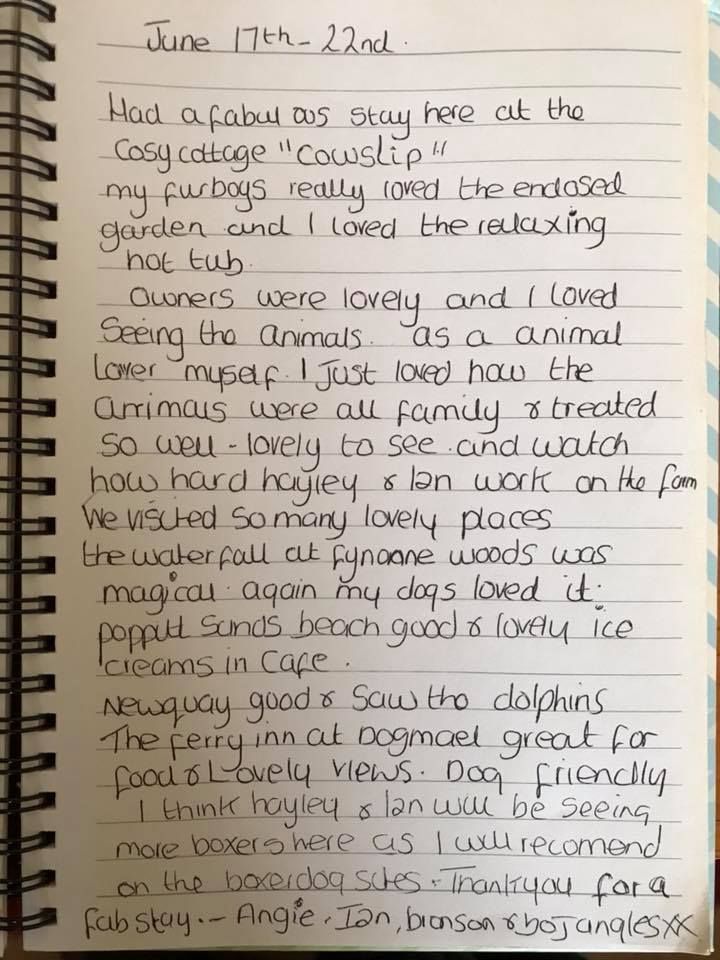 June 17th - 22nd.
Had a fabulous stay here at the
Cosy cottage "Cowslip"
my furboys really loved the enclosed
garden and I loved the relaxing
hot tub.
Owners were lovely and I loved
Seeing the animals. as a animal
Lover myself. I just loved how the
animals were all family & treated
so well - lovely to see. and watch
how hard hayley & Ian work on the farm
We visited so many lovely places
the waterfall at fynonne woods was
magical. again my dogs loved it.
poppitt sands beach good & lovely ice
creams in Cafe.
Newquay good & saw the dolphins
The ferry inn at Dogmael great for
food & Lovely views. Dog friendly
I think hayley & Ian will be seeing
more boxers here as I will recomend
on the boxerdog sites. Thankyou for a
fab stay. - Angie, Ian, bronson & bojangles xx